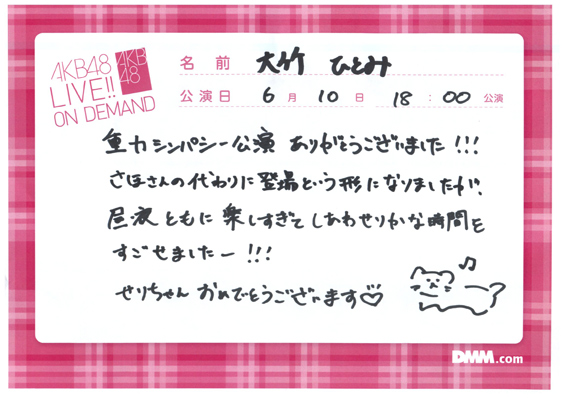 AKB48
LIVE!!
ON DEMAND
AKB
48
名前 大竹 ひとみ
公演日 6月10日 18:00 公演
重力シンパシー公演 ありがとうございました!!!
さほさんの代わりに登場という形になりましたが、
昼夜ともに楽しすぎてしあわせりかな時間を
すごせましたー!!!
せりちゃん おめでとうございます♡
♫
DMM.com